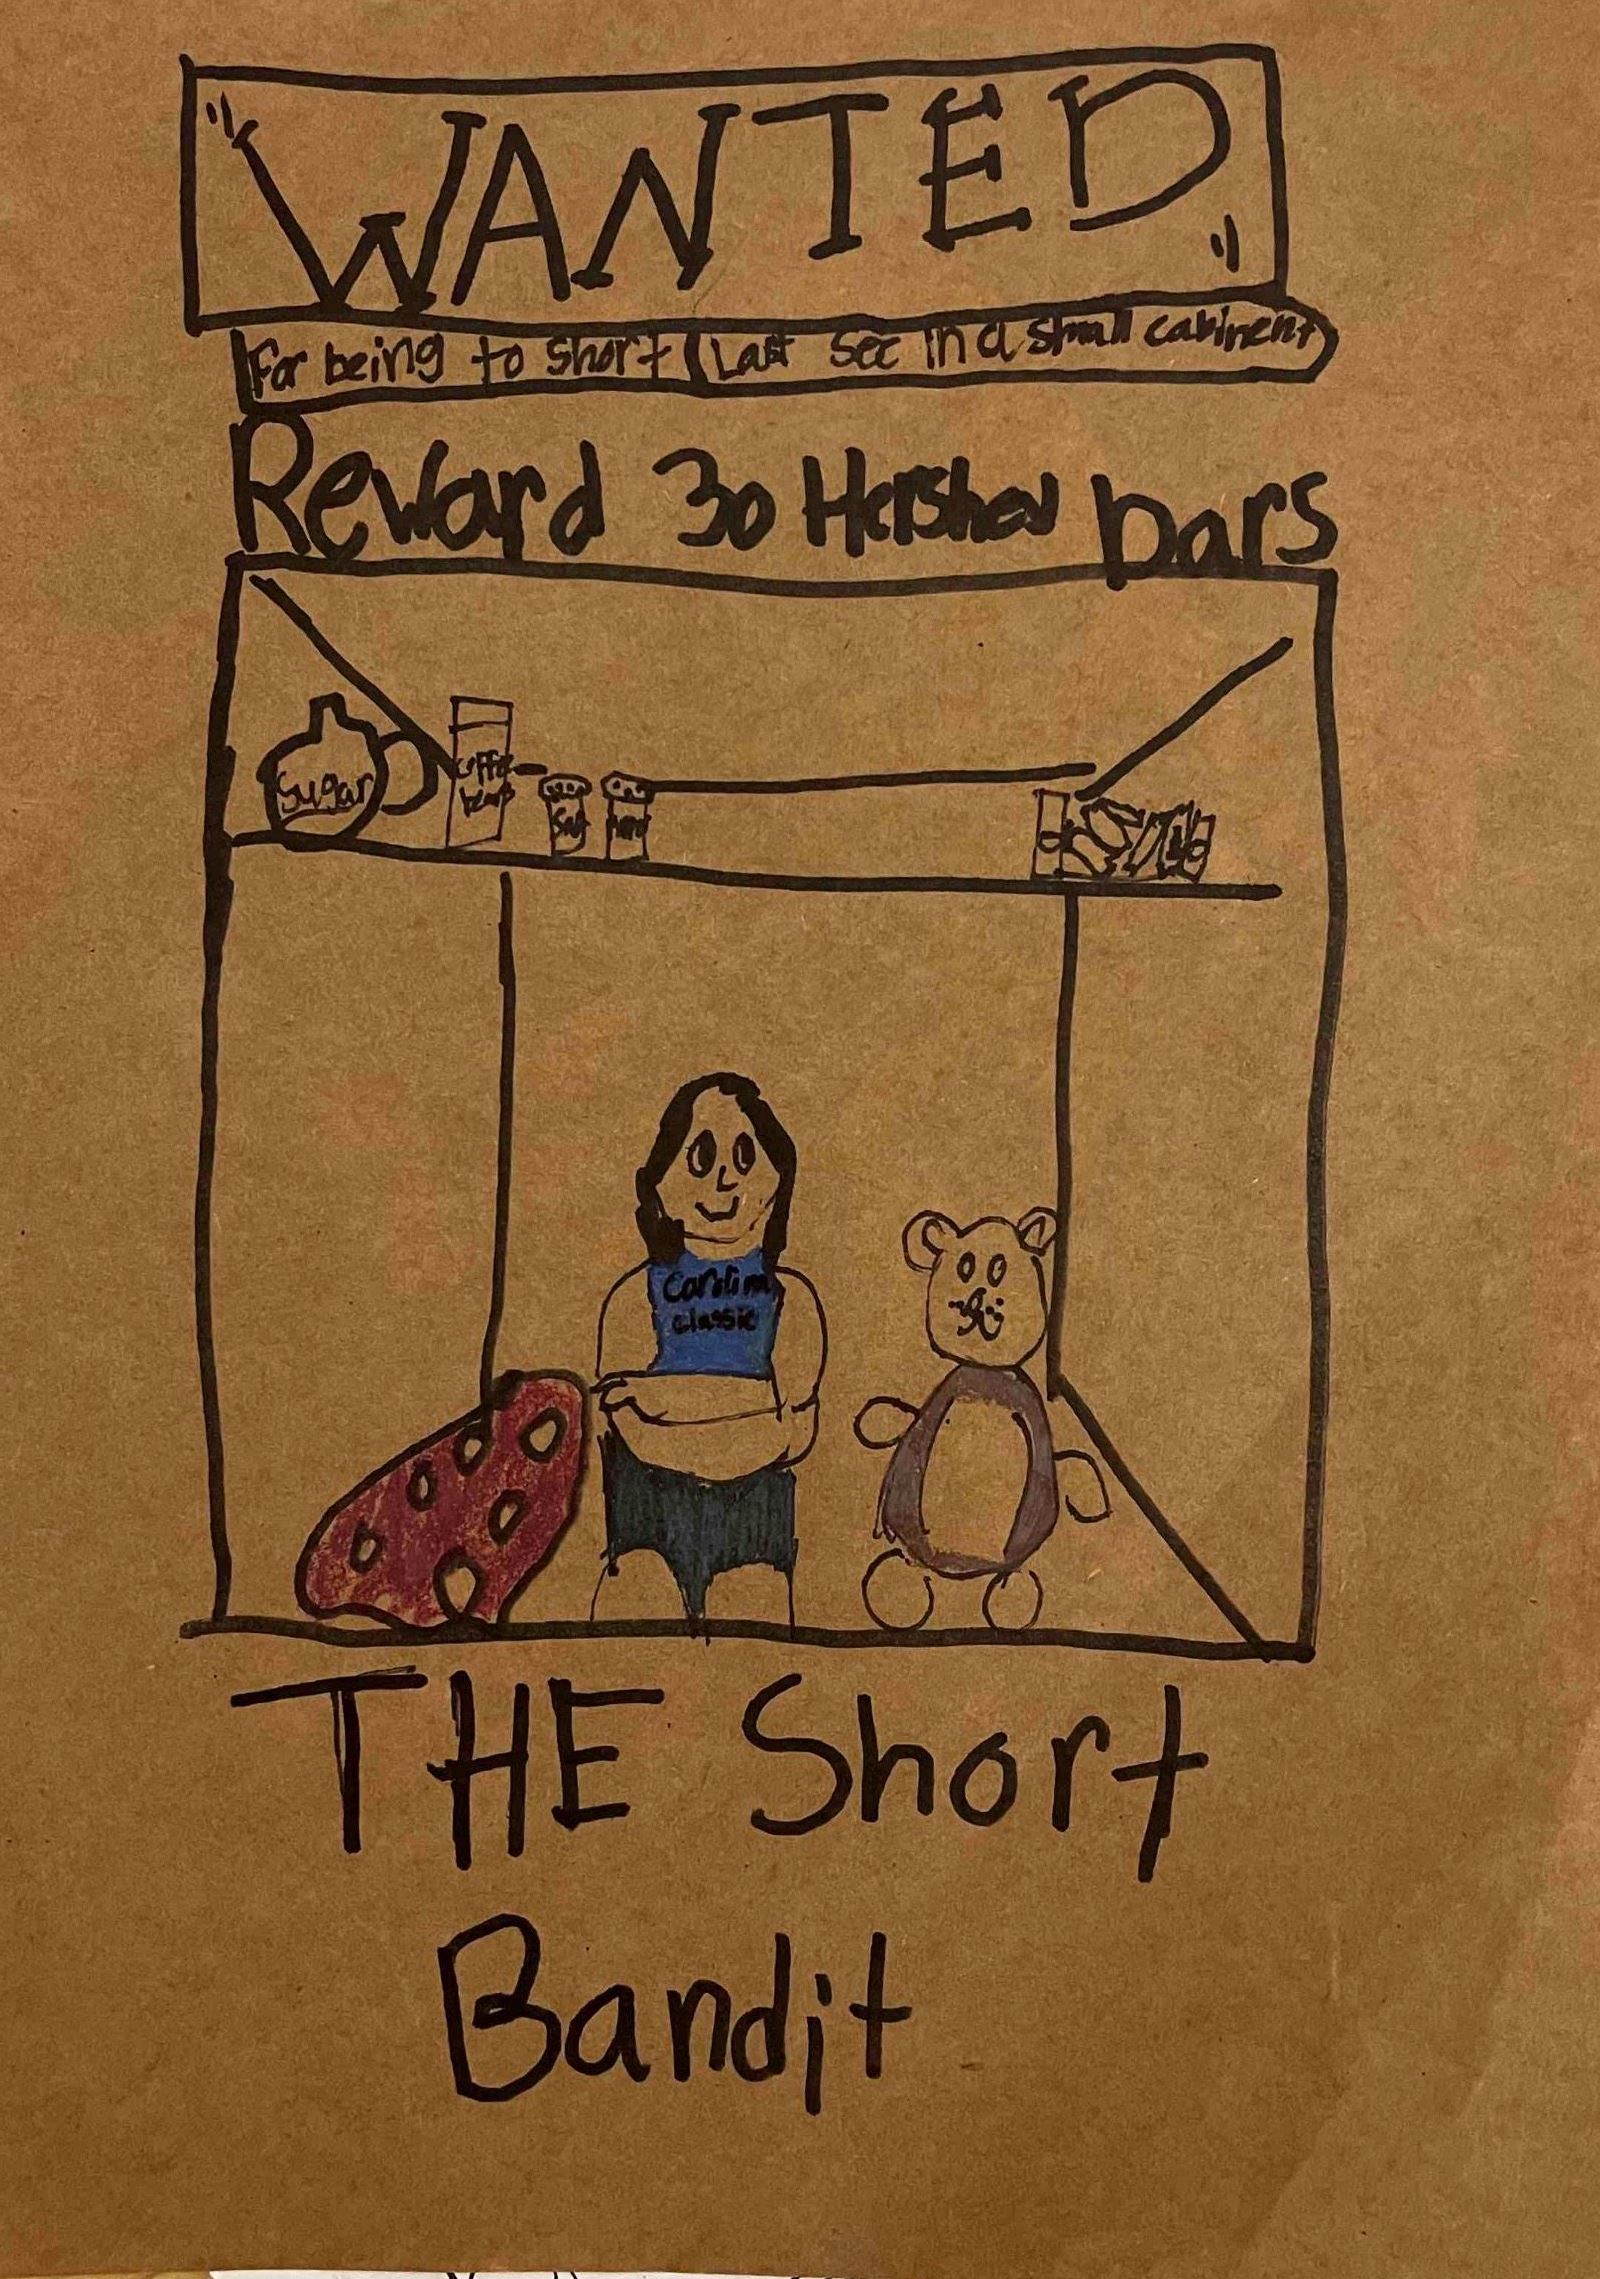 "WANTED"
For being to short (Last see in a small cabinent)
Reward 30 Hershey bars
Sugar
coffee
beans
Salt
Carolina
classic
THE Short
Bandit